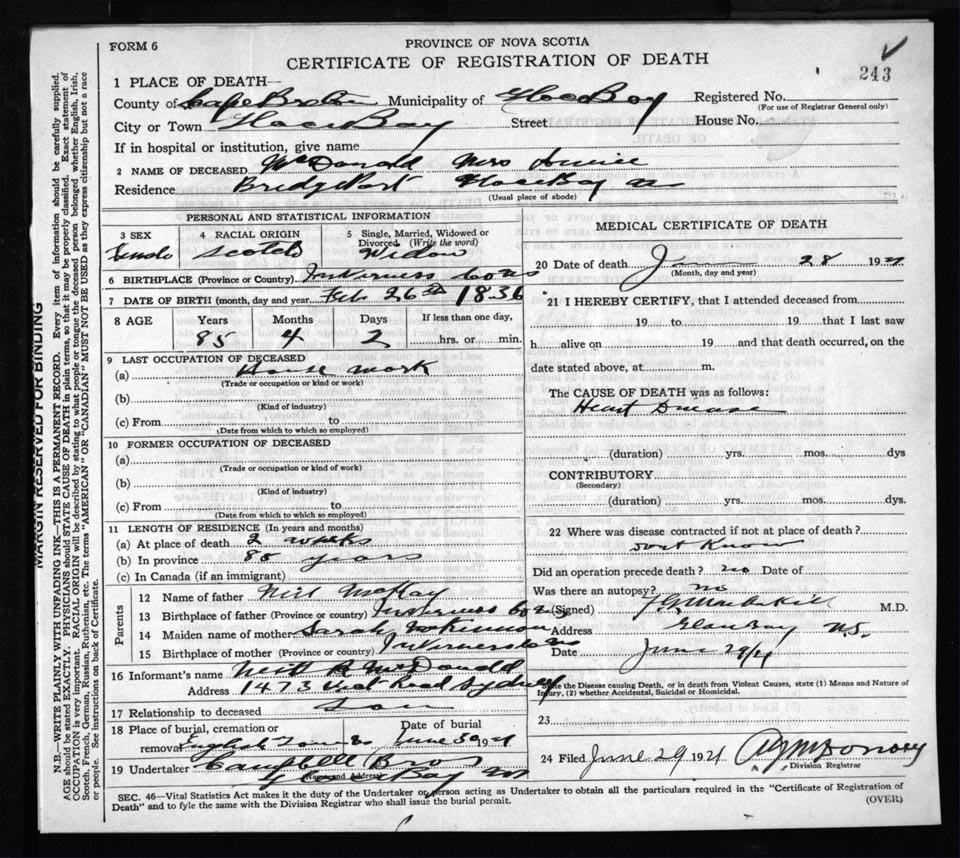 FORM 6
PROVINCE OF NOVA SCOTIA
CERTIFICATE OF REGISTRATION OF DEATH
243
1 PLACE OF DEATH—
County of Cape Breton Municipality of Glace Bay Registered No.
(For use of Registrar General only)
City or Town Glace Bay Street House No.
If in hospital or institution, give name
2 NAME OF DECEASED McDonald Mrs
Residence Bridgeport Glace Bay
(Usual place of abode)
PERSONAL AND STATISTICAL INFORMATION
3 SEX
Female
4 RACIAL ORIGIN
Scotch
5 Single, Married, Widowed or Divorced (Write the word)
Widow
6 BIRTHPLACE (Province or Country) Inverness Co NS
7 DATE OF BIRTH (month, day and year Feb 26th 1836
8 AGE
Years
85
Months
4
Days
2
If less than one day,
hrs. or min.
9 LAST OCCUPATION OF DECEASED
(a) House work
(Trade or occupation or kind or work)
(b)
(Kind of industry)
(c) From to
(Date from which to which so employed)
10 FORMER OCCUPATION OF DECEASED
(a)
(Trade or occupation or kind of work)
(b)
(Kind of industry)
(c) From to
(Date from which to which so employed)
11 LENGTH OF RESIDENCE (In years and months)
(a) At place of death 2 weeks
(b) In province 85 years
(c) In Canada (if an immigrant)
Parents
12 Name of father Neil McKay
13 Birthplace of father (Province or country) Inverness Co NS
14 Maiden name of mother Sarah McKinnon
15 Birthplace of mother (Province or country) Inverness Co NS
16 Informant's name Neil R McDonald
Address 1473 Sydney
17 Relationship to deceased Son
18 Place of burial, cremation or removal English Town
Date of burial
June 30 1921
19 Undertaker Campbell Bros
(Name and Address)
Glace Bay NS
MEDICAL CERTIFICATE OF DEATH
20 Date of death J 28 1921
(Month, day and year)
21 I HEREBY CERTIFY, that I attended deceased from
19 to 19 that I last saw
h alive on 19 and that death occurred, on the
date stated above, at m.
The CAUSE OF DEATH was as follows:
Heart Disease
(duration) yrs. mos. dys
CONTRIBUTORY
(Secondary)
(duration) yrs. mos. dys.
22 Where was disease contracted if not at place of death?
Dont Know
Did an operation precede death? no Date of
Was there an autopsy? no
(Signed) M.D.
Address Glace Bay N.S.
Date June 29/21
State the Disease causing Death, or in death from Violent Causes, state (1) Means and Nature of
Injury, (2) whether Accidental, Suicidal or Homicidal.
23
24 Filed June 29 1921
Division Registrar
SEC. 46—Vital Statistics Act makes it the duty of the Undertaker or person acting as Undertaker to obtain all the particulars required in the "Certificate of Registration of
Death" and to fyle the same with the Division Registrar who shall issue the burial permit.
(OVER)
MARGIN RESERVED FOR BINDING
N.B.—WRITE PLAINLY WITH UNFADING INK—THIS IS A PERMANENT RECORD. Every item of information should be carefully supplied.
AGE should be stated EXACTLY. PHYSICIANS should STATE CAUSE OF DEATH in plain terms, so that it may be properly classified. Exact statement of
OCCUPATION is very important. RACIAL ORIGIN will be described by stating to what people or tongue the deceased person belonged whether English, Irish,
Scotch, French, German, Russian, Ruthenian, etc. The terms "AMERICAN" OR "CANADIAN" MUST NOT BE USED as they express citizenship but not a race
or people. See instructions on back of Certificate.